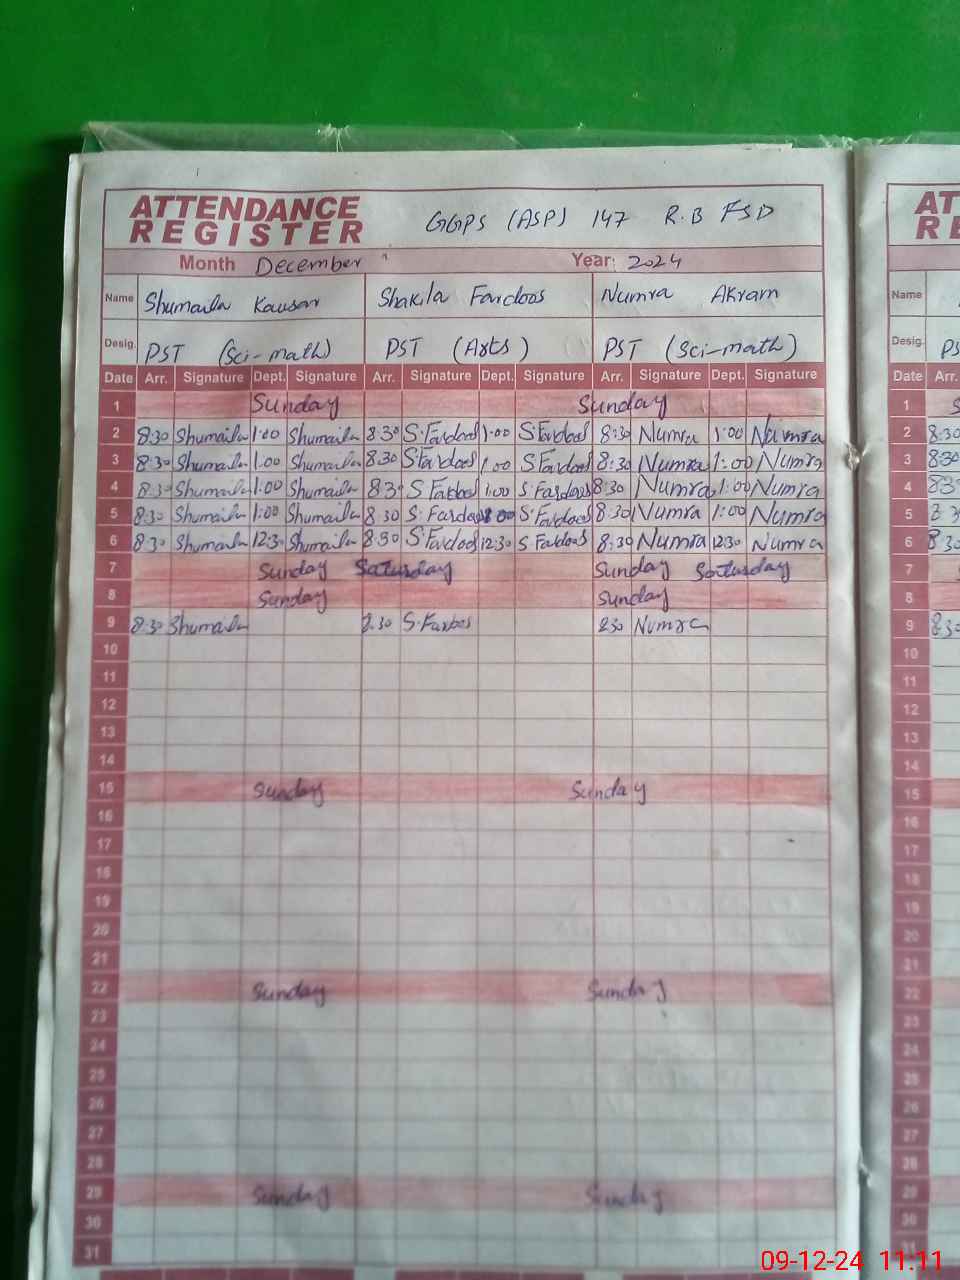 ATTENDANCE REGISTER GGPS (ASP) 147 R.B FSD
Month December Year: 2024
Name Shumaila Kausar Shakila Fardoos Numra Akram
Desig. PST (Sci-math) PST (Arts) PST (Sci-math)
Date Arr. Signature Dept. Signature Arr. Signature Dept. Signature Arr. Signature Dept. Signature
1 Sunday Sunday
2 8:30 Shumaila 1:00 Shumaila 8 30 S.Fardoos 1:00 S.Fardoos 8:30 Numra 1:00 Numra
3 8:30 Shumaila 1:00 Shumaila 8.30 S.Fardoos 1.00 S.Fardoos 8:30 Numra 1:00 Numra
4 8:30 Shumaila 1:00 Shumaila 830 S Fardoos 1:00 S.Fardoos 8:30 Numra 1:00 Numra
5 8:30 Shumaila 1:00 Shumaila 8 30 S.Fardoos 00 S.Fardoos 8:30 Numra 1:00 Numra
6 8:30 Shumaila 12:30 Shumaila 8:30 S.Fardoos 12:30 S Fardoos 8:30 Numra 12:30 Numra
7 Sunday Saturday Sunday Saturday
8 Sunday Sunday
9 8:30 Shumaila 8.30 S.Fardos 830 Numra
10
11
12
13
14
15 Sunday Sunday
16
17
18
19
20
21
22 Sunday Sunday
23
24
25
26
27
28
29 Sunday Sunday
30
31
AT
RE
Name
Desig. PS
Date Arr.
1 S
2 8:30
3 8:30
4 8:3
5 8 3
6 8 30
7
8
9 8:30
10
11
12
13
14
15
16
17
18
19
20
21
22
23
24
25
26
27
28
29
30
31
09-12-24 11:11